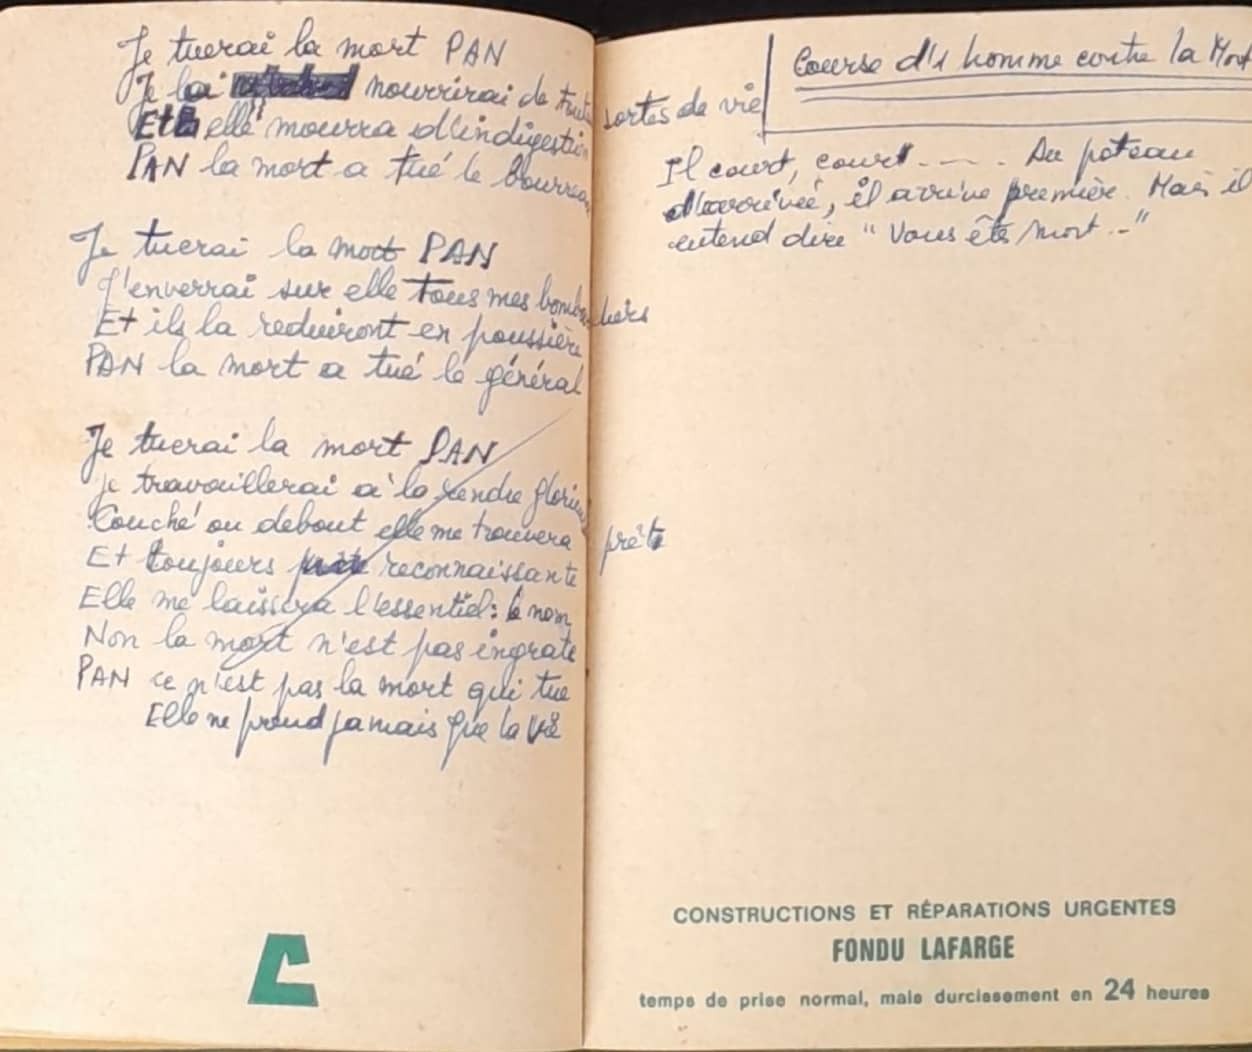 Je tuerai la mort PAN
Je la nourrirai de toutes sortes de vie
Et elle mourra d'indigestion
PAN la mort a tué le bourreau
Je tuerai la mort PAN
J'enverrai sur elle tous mes bombardiers
Et ils la reduiront en poussière
PAN la mort a tué le général
Je tuerai la mort PAN
Je travaillerai à la rendre glorieuse
Couché ou debout elle me trouvera prête
Et toujours reconnaissante
Elle me laissera l'essentiel: le nom
Non la mort n'est pas ingrate
PAN ce n'est pas la mort qui tue
Elle ne prend jamais que la vie
Course d'1 homme contre la Mort
Il court, court - - - . Au poteau
d'arrivée, il arrive première. Mais il
entend dire "Vous êtes mort.."
CONSTRUCTIONS ET RÉPARATIONS URGENTES
FONDU LAFARGE
temps de prise normal, mais durcissement en 24 heures